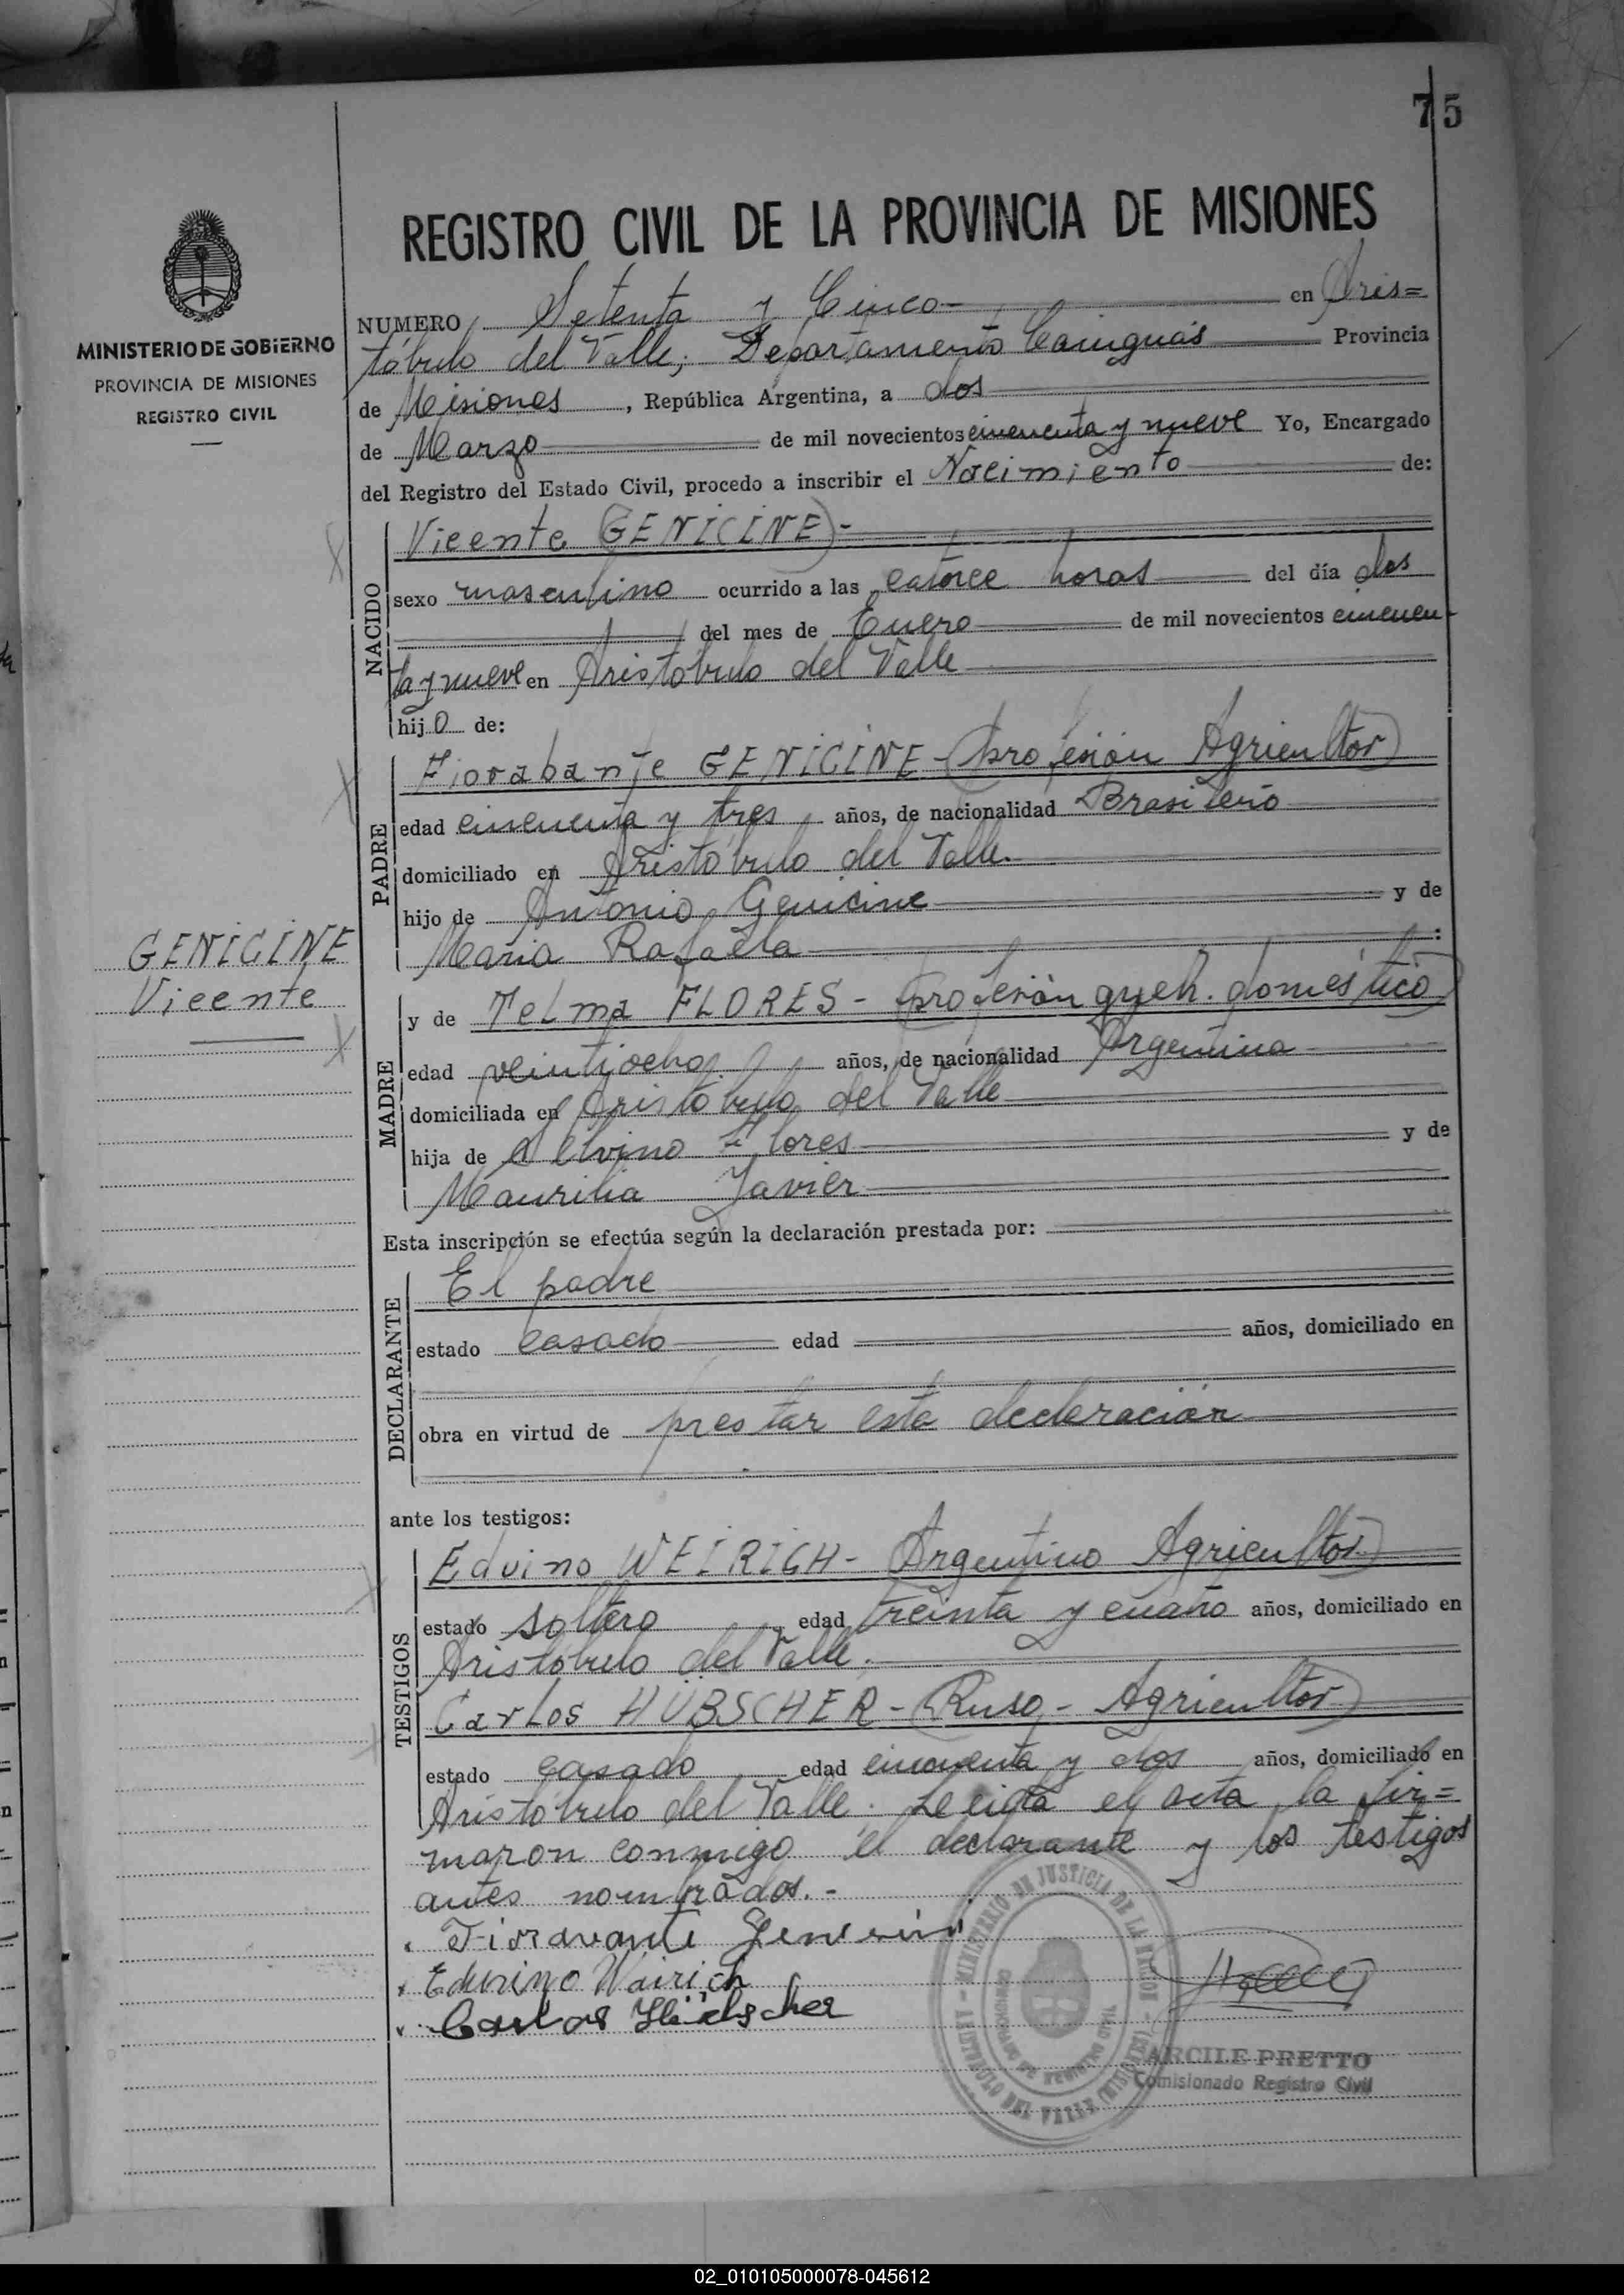 75
REGISTRO CIVIL DE LA PROVINCIA DE MISIONES
MINISTERIO DE GOBIERNO
PROVINCIA DE MISIONES
REGISTRO CIVIL
NUMERO Setenta y Cinco en Aris=
tóbulo del Valle, Departamento Cainguás Provincia
de Misiones, República Argentina, a dos
de Marzo de mil novecientos cincuenta y nueve Yo, Encargado
del Registro del Estado Civil, procedo a inscribir el Nacimiento de:
NACIDO
Vicente (GENICINE)-
sexo masculino ocurrido a las catorce horas del día dos
del mes de Enero de mil novecientos cincuen-
ta y nueve en Aristóbulo del Valle
hijo de:
PADRE
Fiorabante GENICINE (profesión Agricultor)
edad cincuenta y tres años, de nacionalidad Brasilero
domiciliado en Aristóbulo del Valle.
hijo de Antonio Genicine y de
Maria Rafaela :
GENICINE
Vicente
MADRE
y de Telma FLORES - (profesión queh. doméstico)
edad veintiocho años, de nacionalidad Argentina
domiciliada en Aristóbulo del Valle
hija de Alvino Flores y de
Maurilia Javier
Esta inscripción se efectúa según la declaración prestada por:
DECLARANTE
El padre
estado casado edad años, domiciliado en
obra en virtud de prestar esta declaración
ante los testigos:
TESTIGOS
Edvino WEIRICH - (Argentino Agricultor)
estado soltero edad treinta y cuatro años, domiciliado en
Aristóbulo del Valle.
Carlos HÜBSCHER - (Ruso - Agricultor)
estado casado edad cincuenta y dos años, domiciliado en
Aristóbulo del Valle. Leida el acta la fir=
maron conmigo el declarante y los testigos
antes nombrados.-
Fioravante
Edvino Wairich
Carlos
MINISTERIO DE JUSTICIA DE LA NACION
ARISTOBULO DEL VALLE (MISIONES)
ARCILE PRETTO
Comisionado Registro Civil
02_010105000078-045612